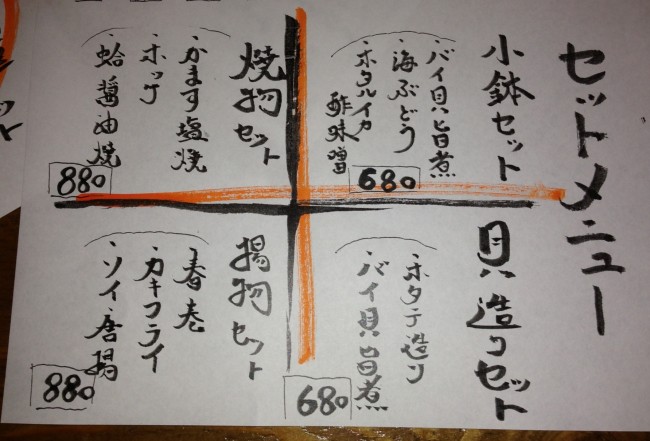 セットメニュー
小鉢セット
・バイ貝旨煮
・海ぶどう
・ホタルイカ
酢味噌
680
貝造りセット
・ホタテ造り
・バイ貝旨煮
680
焼物セット
・かます塩焼
・ホッケ
・蛤醤油焼
880
揚物セット
・春巻
・カキフライ
・ソイ唐揚
880